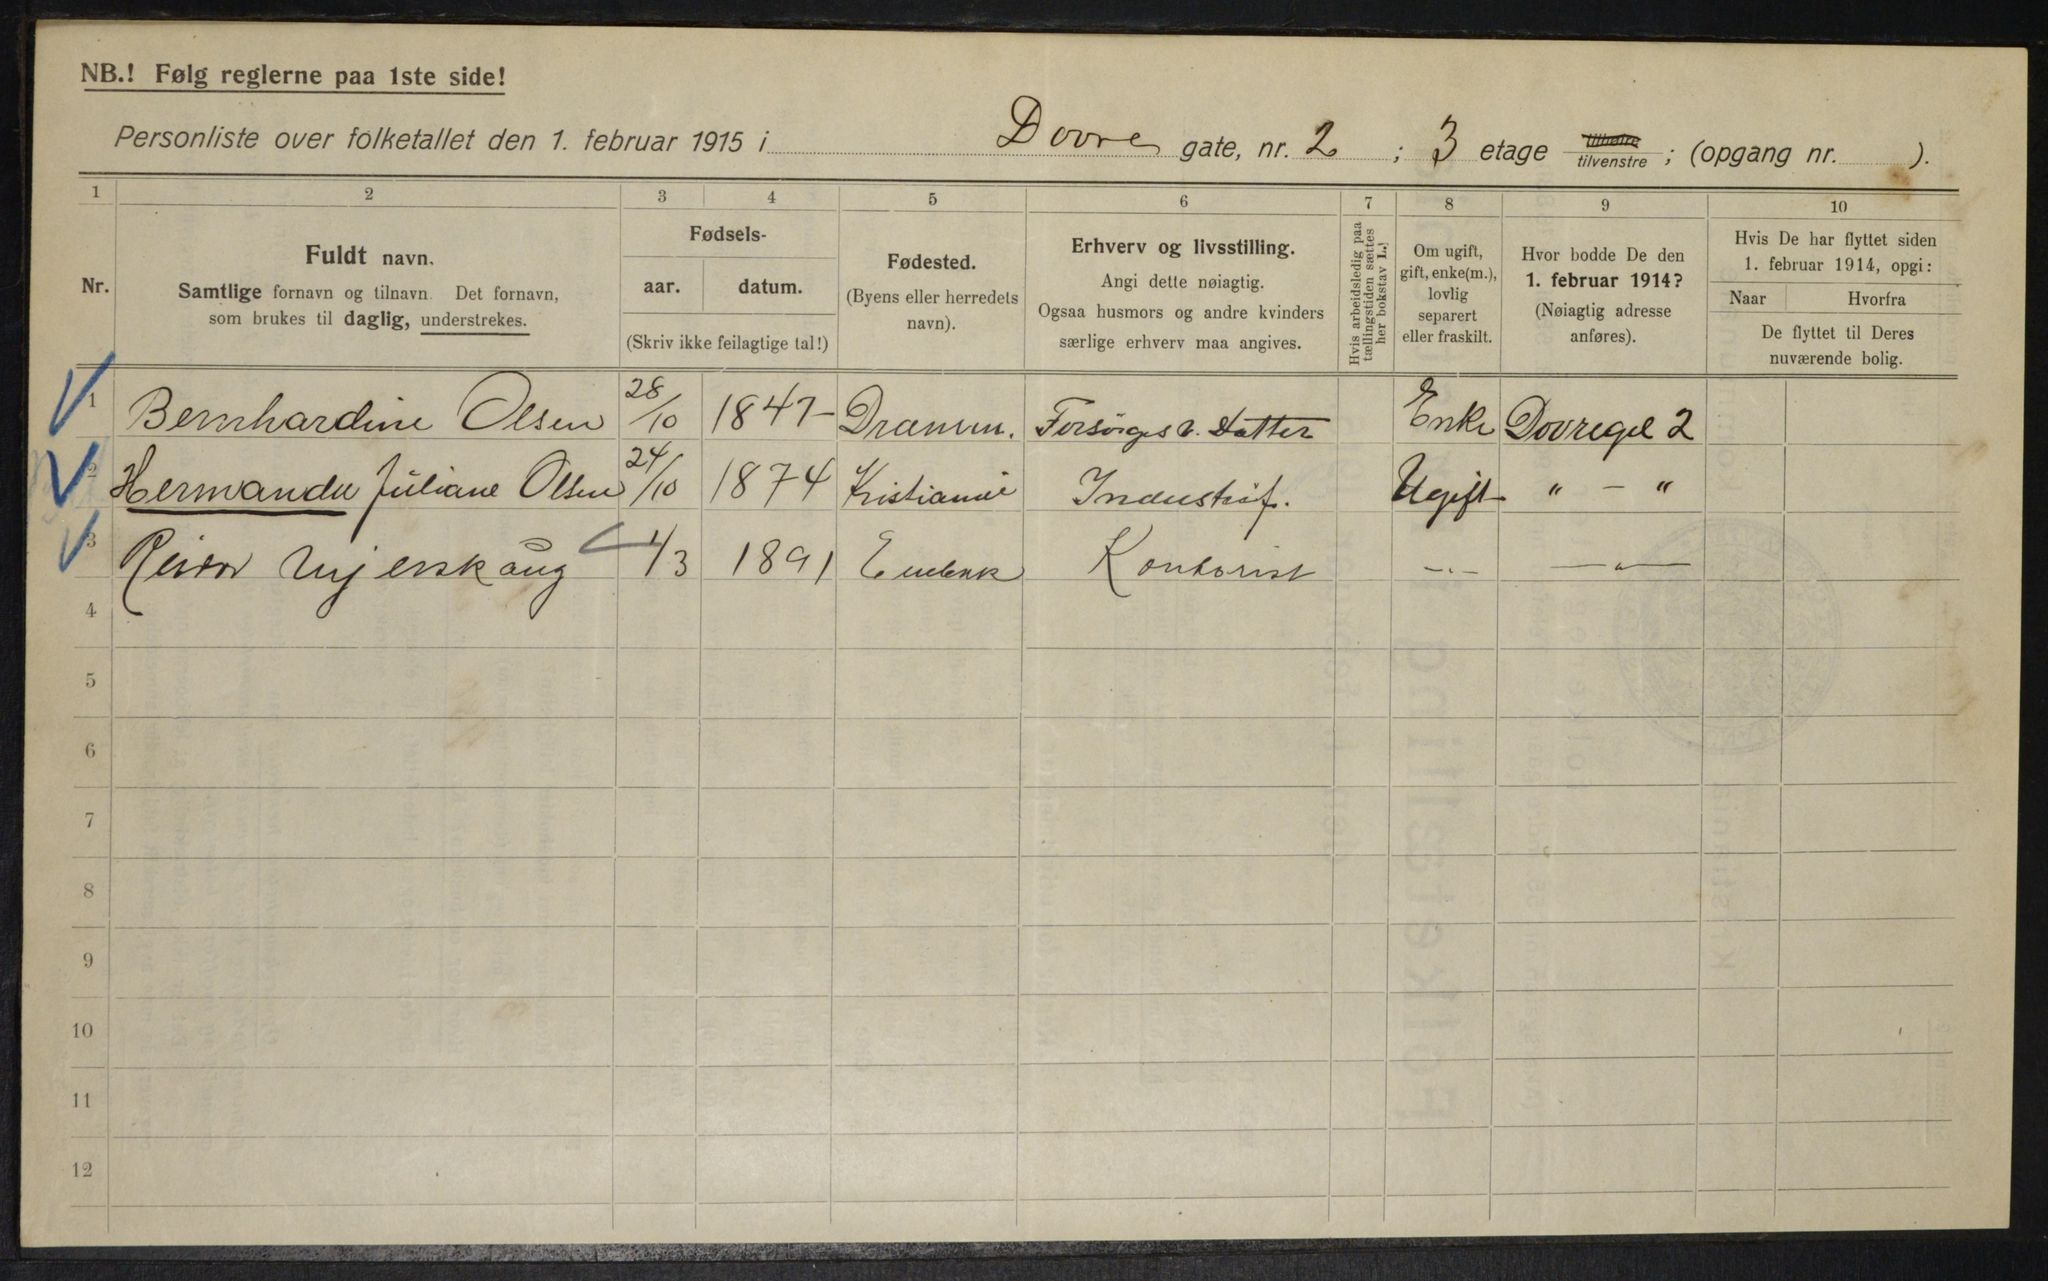 NB.! Følg reglerne paa 1ste side!
Personliste over folketallet den 1. februar 1915 i Dovre gate, nr. 2 ; 3 etage tilhøire tilvenstre ; (opgang nr. ).
1 2 3 4 5 6 7 8 9 10
Nr.
Fuldt navn.
Samtlige fornavn og tilnavn. Det fornavn,
som brukes til daglig, understrekes.
Fødsels-
aar. datum.
(Skriv ikke feilagtige tal!)
Fødested.
(Byens eller herredets
navn).
Erhverv og livsstilling.
Angi dette nøiagtig.
Ogsaa husmors og andre kvinders
særlige erhverv maa angives.
Hvis arbeidsledig paa
tællingstiden sættes
her bokstav L.!
Om ugift,
gift, enke(m.),
lovlig
separert
eller fraskilt.
Hvor bodde De den
1. februar 1914?
(Nøiagtig adresse
anføres).
Hvis De har flyttet siden
1. februar 1914, opgi:
Naar Hvorfra
De flyttet til Deres
nuværende bolig.
1 Bernhardine Olsen 28/10 1847 Drammen. Forsørges v. Datter Enke Dovregt 2
2 Hermanda Juliane Olsen 24/10 1874 Kristiania Industrif. Ugift " - "
3 Reidar 1/3 1891 Kontorist -"- -"-
4
5
6
7
8
9
10
11
12